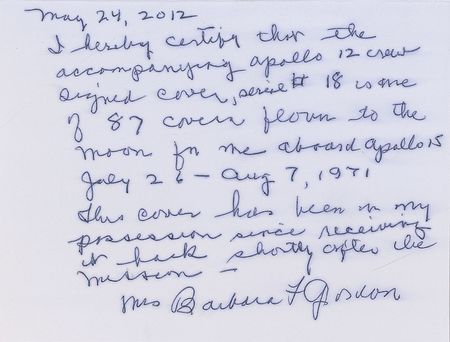 May 24, 2012
I hereby certify that the
accompanying apollo 12 crew
signed cover, serial # 18 is one
of 87 covers flown to the
moon for me aboard apollo 15
July 26 - Aug 7, 1971
This cover has been in my
possession since receiving
it back shortly after the
mission -
Mrs Barbara F Gordon